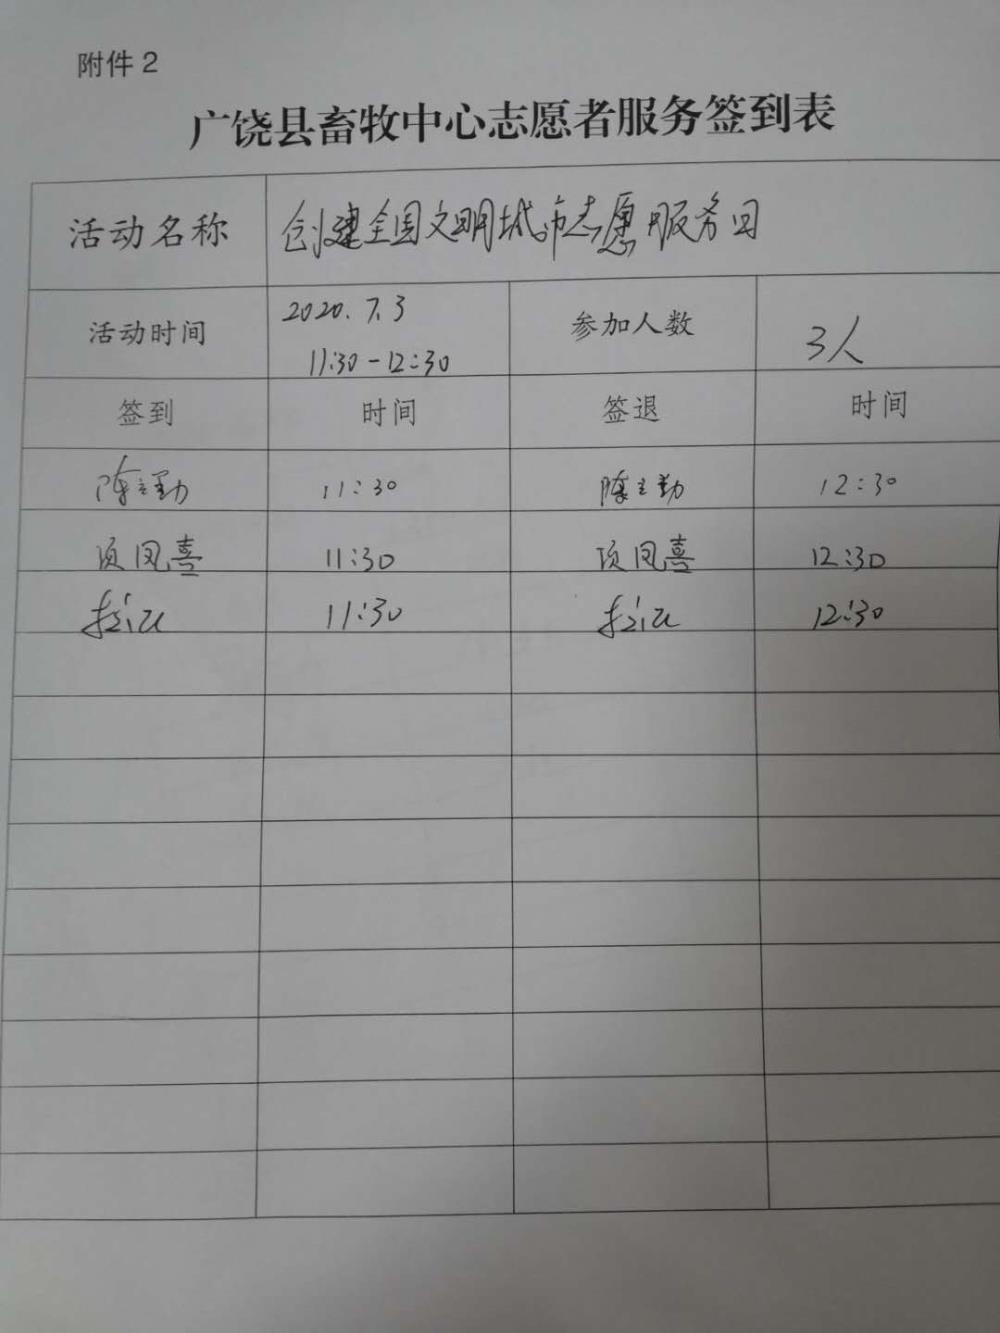 附件2
广饶县畜牧中心志愿者服务签到表
活动名称 创建全国文明城市志愿服务日
活动时间 2020.7.3 参加人数 3人
11:30-12:30
签到 时间 签退 时间
陈立勤 11:30 陈立勤 12:30
项凤喜 11:30 项凤喜 12:30
11:30 12:30